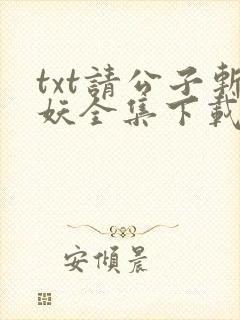 txt請公子斬
妖全集下載
安傾晨